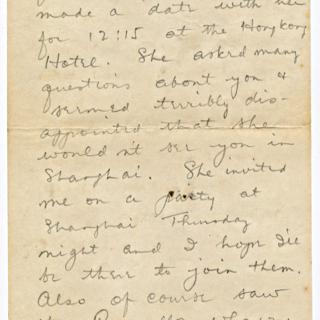 made a date with her
for 12:15 at the Hongkong
Hotel. She asked many
questions about you &
seemed terribly dis-
appointed that she
would n't see you in
Shanghai. She invited
me on a party at
Shanghai Thursday
night and I hope I'll
be there to join them.
Also of course saw
the